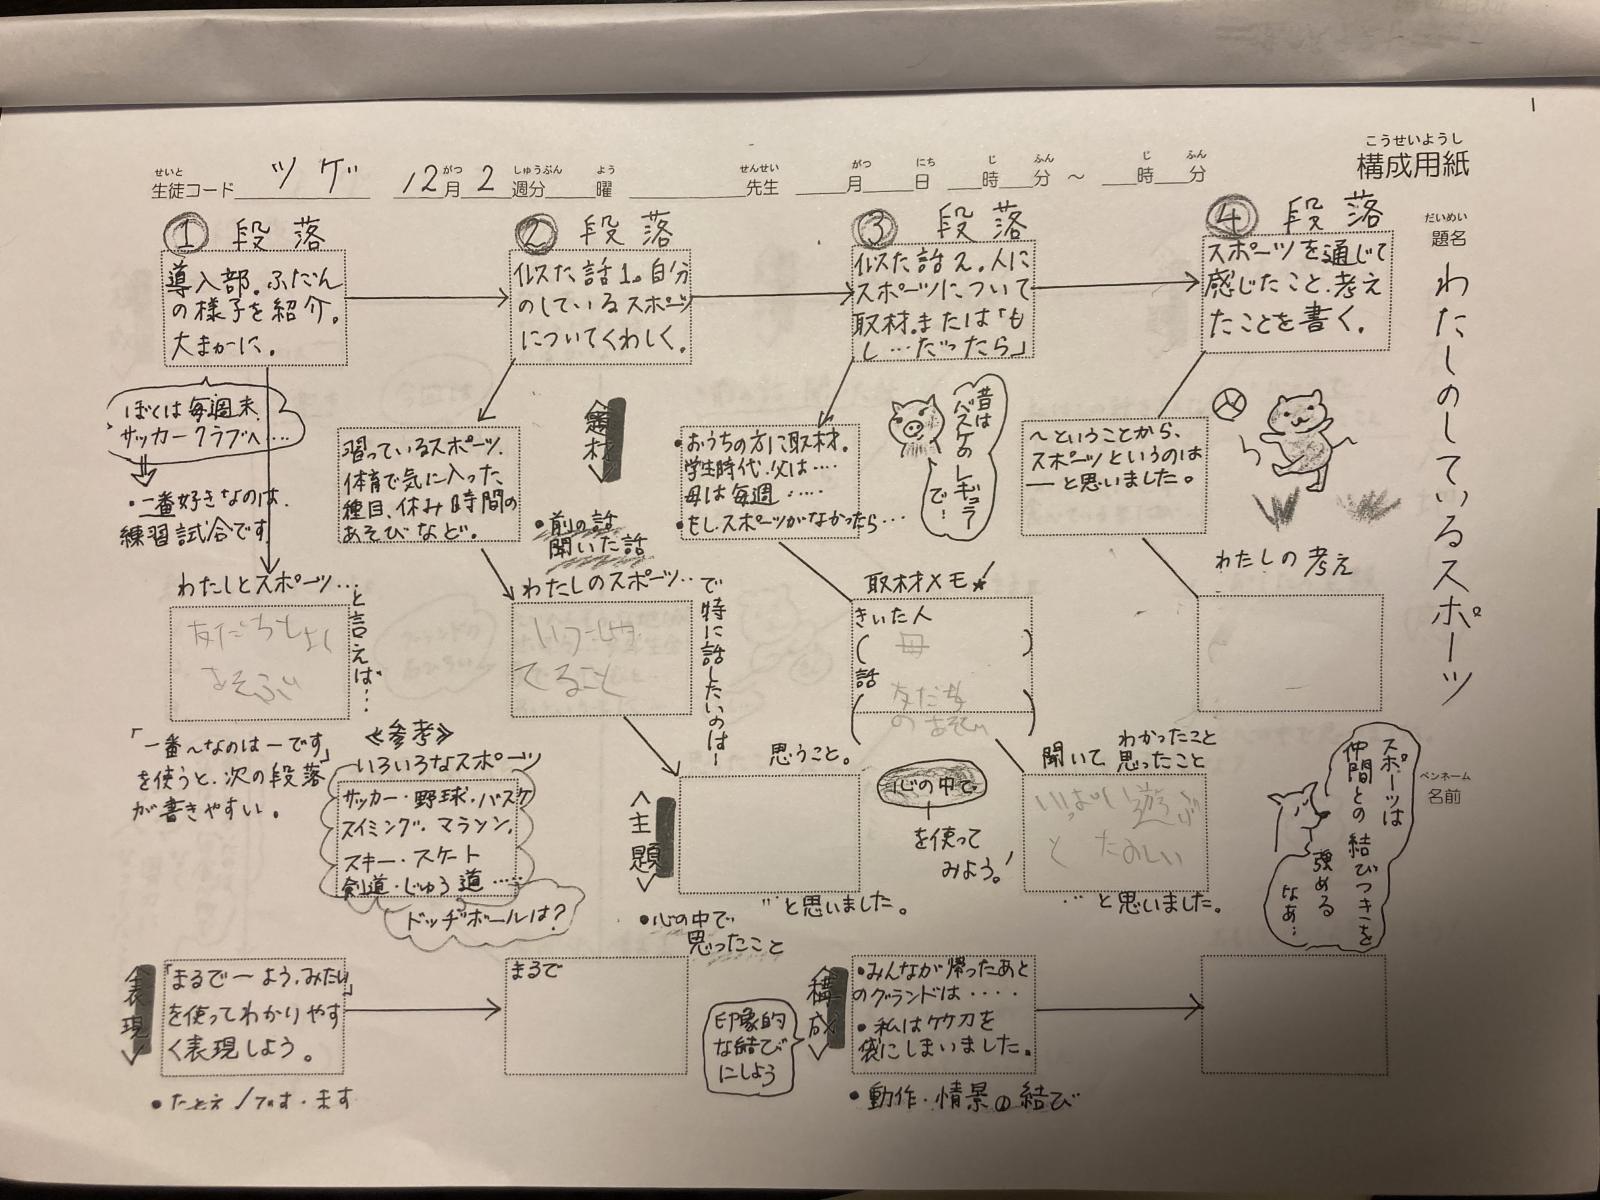 こうせいようし
構成用紙
せいと
生徒コード ツゲ
12月 がつ 2週分 しゅうぶん 曜 よう
せんせい
先生
がつ にち じ ふん じ ふん
月 日 時 分 ～ 時 分
だいめい
題名
わたしのしているスポーツ
ペンネーム
名前
① 段落
導入部。ふだん
の様子を紹介。
大まかに。
ぼくは毎週末、
サッカークラブへ‥‥
・一番好きなのは、
練習試合です。
わたしとスポーツ…
と言えば…
友だちとよく
あそぶ
「一番～なのは―です」
を使うと、次の段落
が書きやすい。
② 段落
似た話1。自分
のしているスポーツ
についてくわしく。
習っているスポーツ、
体育で気に入った
種目、休み時間の
あそびなど。
＜題材＞
・前の話
聞いた話
わたしのスポーツ…
で特に話したいのは―
いつもしゃ
てること
≪参考≫
いろいろなスポーツ
サッカー・野球・バスケ
スイミング・マラソン、
スキー・スケート
剣道・じゅう道……
ドッヂボールは？
思うこと。
＜主題＞
…と思いました。
・心の中で
思ったこと
③ 段落
似た話2。人に
スポーツについて
取材。または「も
し…だったら」
・おうちの方に取材。
学生時代、父は‥‥
母は毎週‥‥
・もしスポーツがなかったら…
昔は
バスケの
レギュラー
で…
取材メモ★
きいた人
( 母 )
話
( 友だち
のあそび )
心の中で
を使って
みよう！
聞いて わかったこと
思ったこと
いっぱい遊ぶ
と たのしい
…と思いました。
④ 段落
スポーツを通じて
感じたこと、考え
たことを書く。
～ということから、
スポーツというのは
―と思いました。
わたしの考え
スポーツは
仲間との結びつきを
強める
なあ…
＜表現＞
「まるで―よう、みたい」
を使ってわかりやす
く表現しよう。
・たとえ
まるで
＜構成＞
印象的
な結び
にしよう
・みんなが帰ったあと
のグランドは‥‥
・私はケケ刀を
袋にしまいました。
・動作・情景の結び